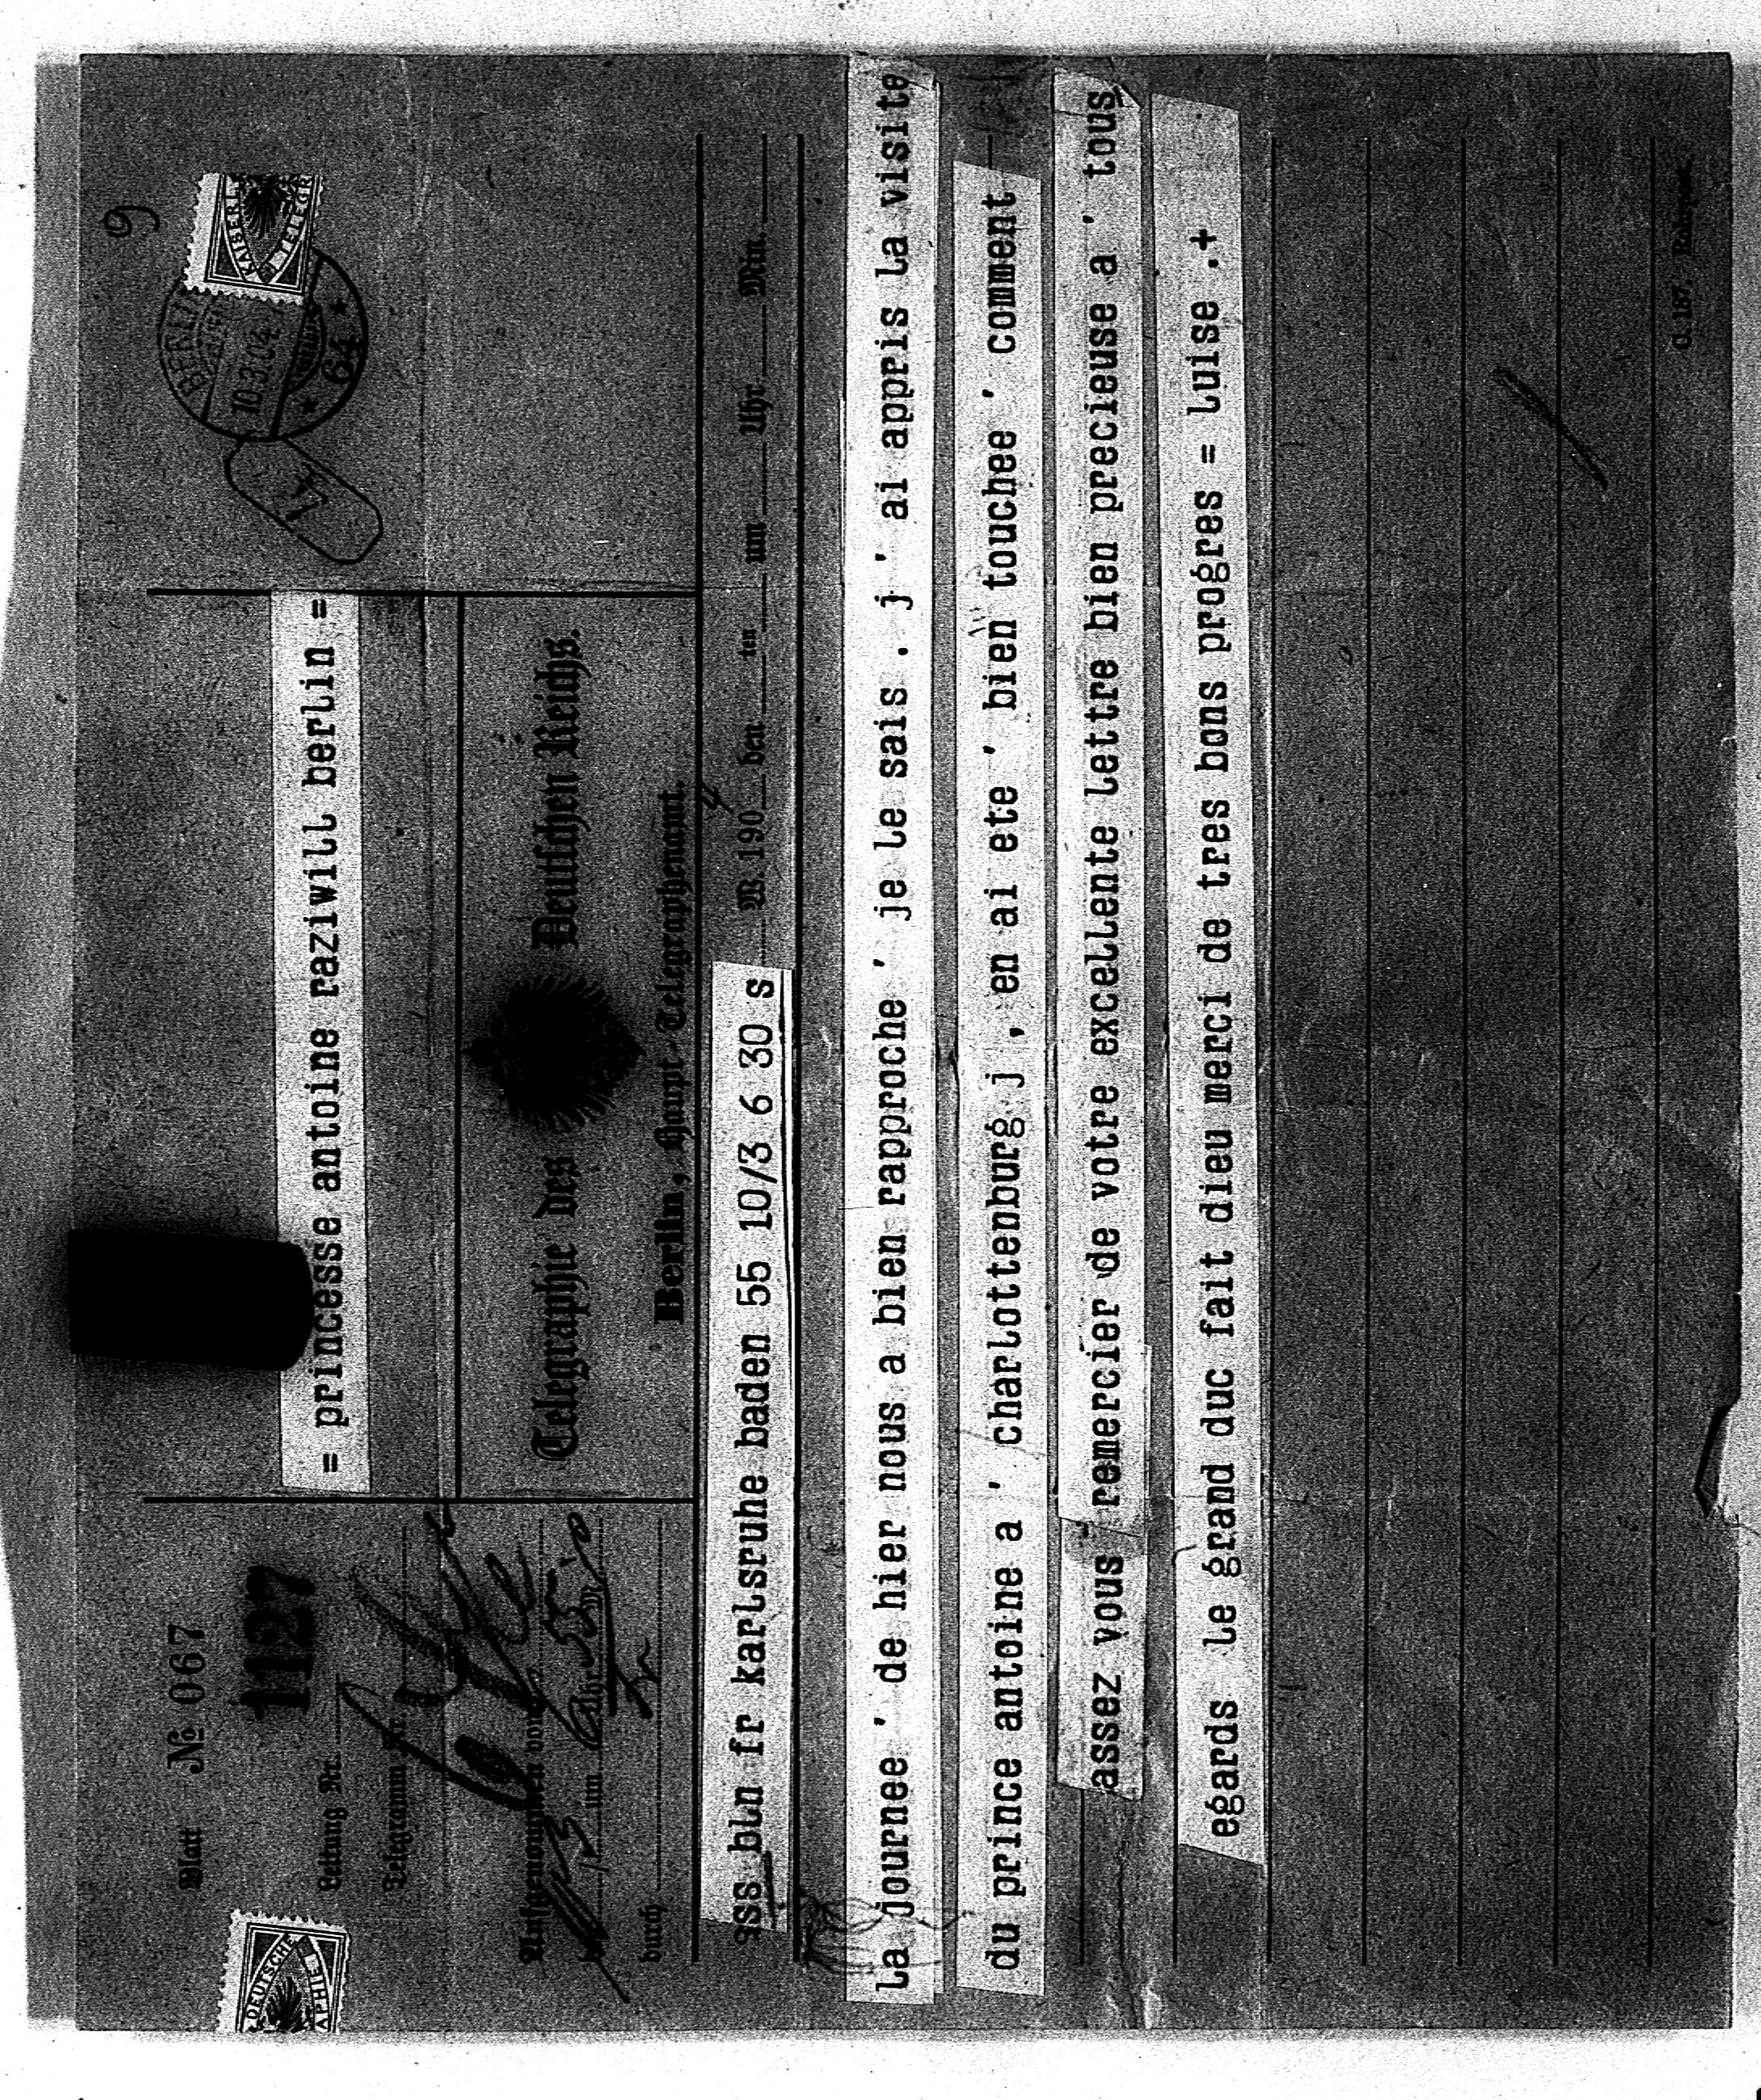 9
Blatt № 067
1127
Leitung Nr.
Telegramm Nr.
Aufgenommen von
um Uhr 55 M
durch
= princesse antoine raziwill berlin =
Telegraphie des Deutschen Reichs.
Berlin, Haupt-Telegraphenamt.
KAISERL
TELEGR
BERLIN
10.3.04
64
DEUTSCHE
APHIE
ss bln fr karlsruhe baden 55 10/3 6 30 s
W. 1904 den ten um Uhr Min.
la journee ' de hier nous a bien rapproche ' je le sais . j ' ai appris la visite
du prince antoine a ' charlottenburg j , en ai ete ' bien touchee ' comment
assez vous remercier de votre excellente lettre bien precieuse a ' tous
egards le grand duc fait dieu merci de tres bons progres = luise .+
C. 187.